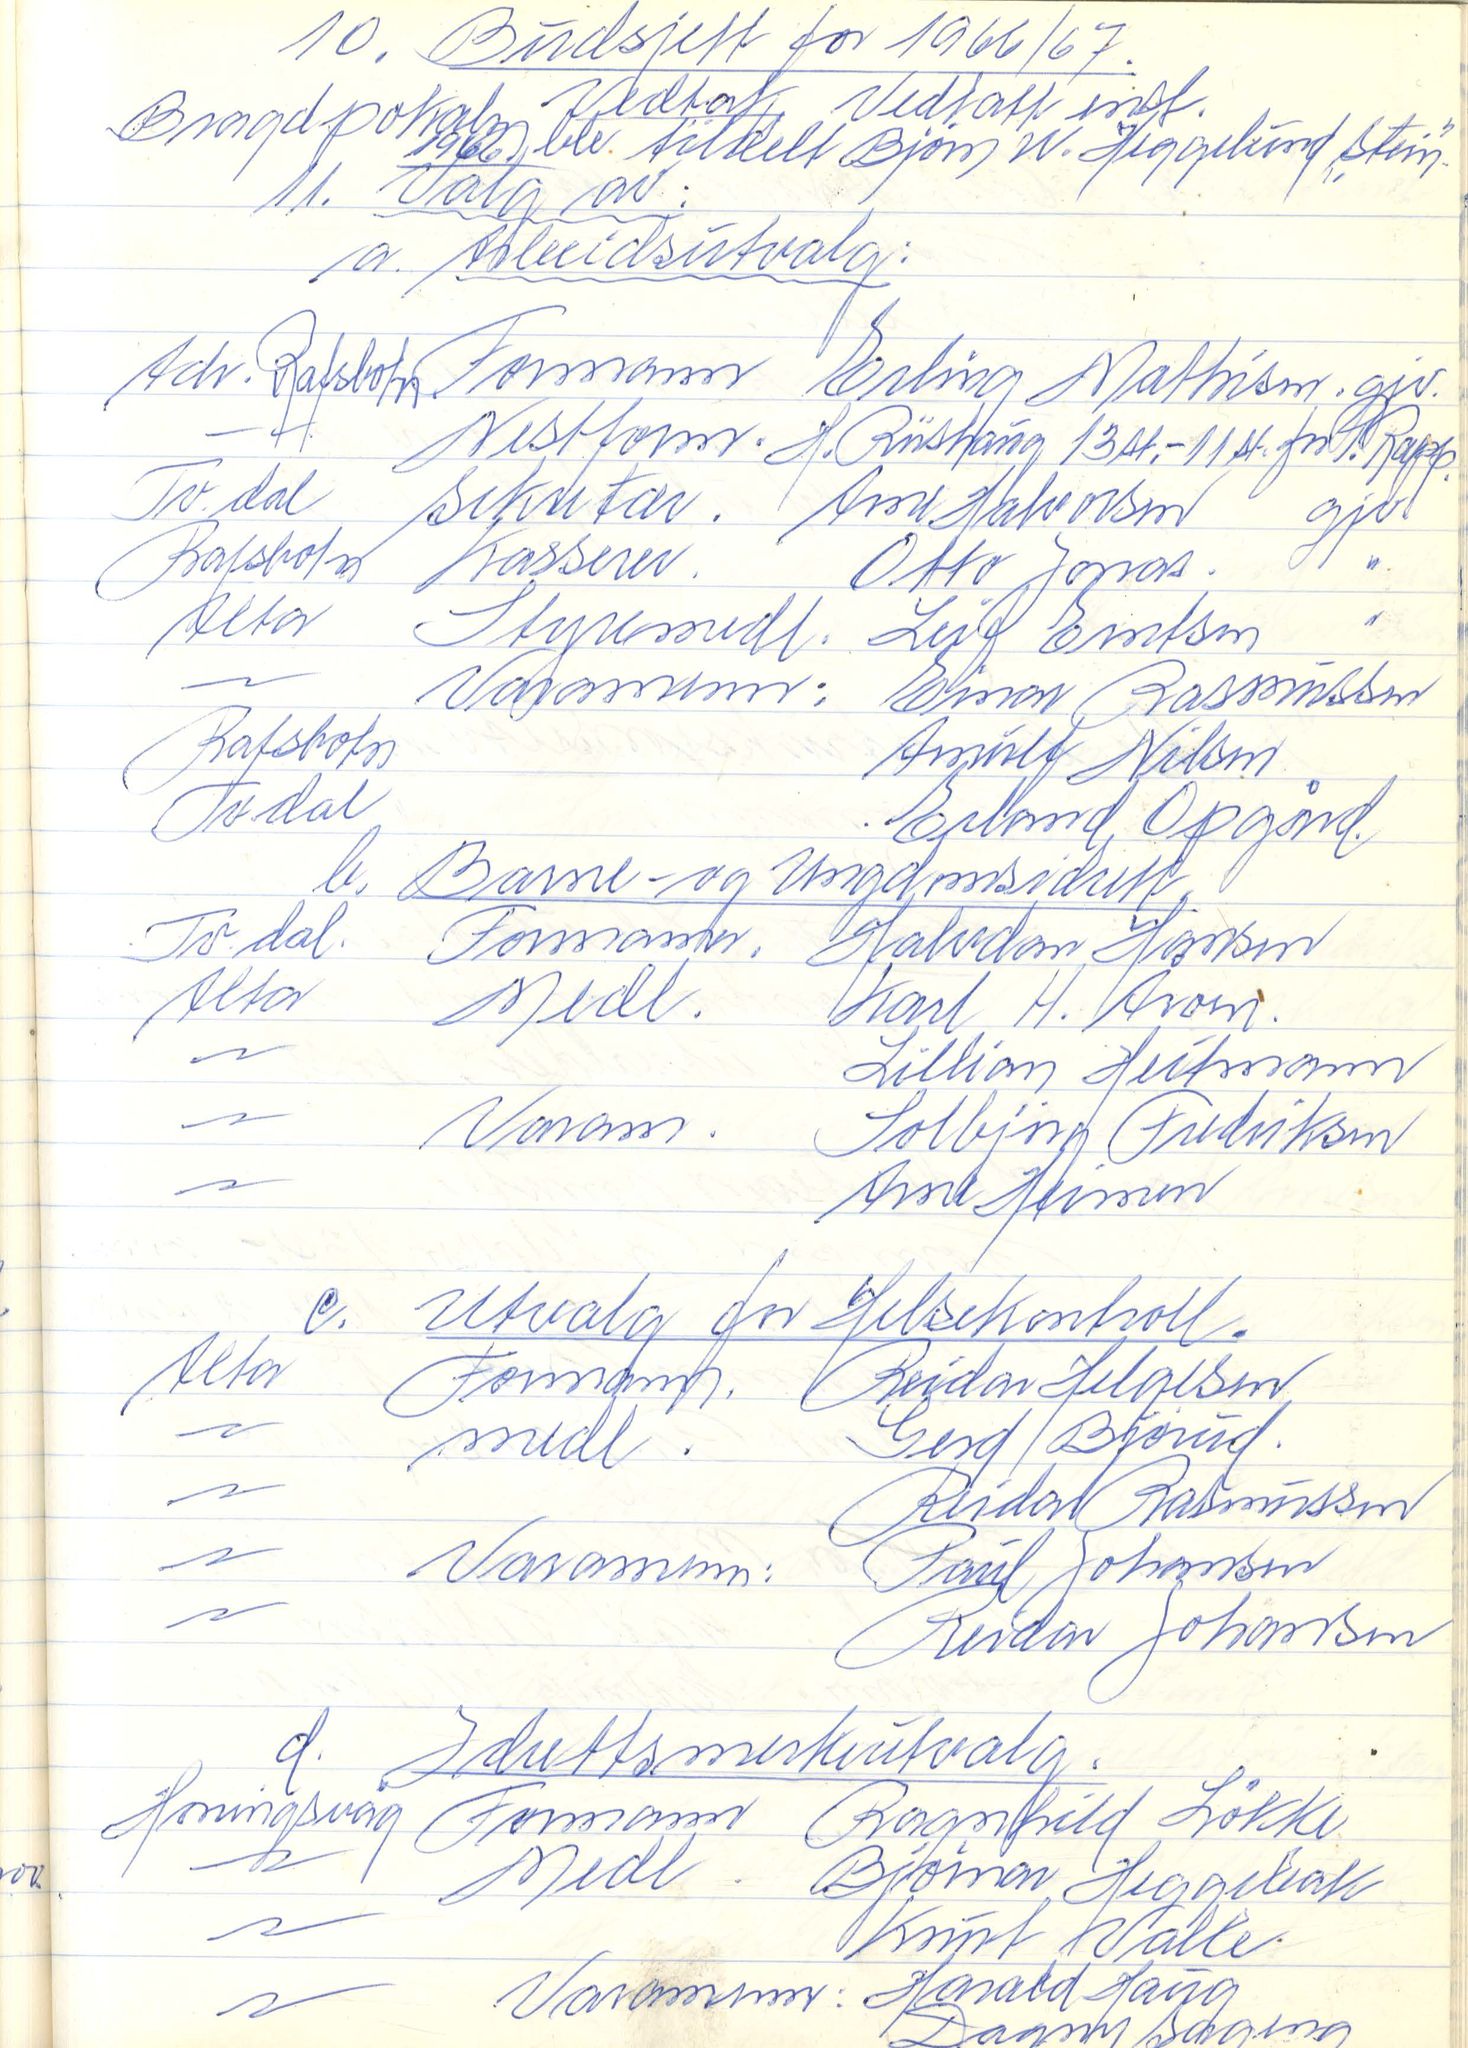 10. Budsjett for 1966/67.
Vedtak. Vedtatt enst.
Bragdpokalen 1966 ble tildelt Bjørn W. Heggelund, "Stein".
11. Valg av:
a. Arbeidsutvalg:
Adr. Rafsbotn. Formann Erling Mathisen. gjv.
—"— Nestform. H. Rushaug 13 st. - 11 st. for P. Rapp.
Tv.dal Sekretær. Arne Halvorsen gjv.
Rafsbotn Kasserer. Otto Jonas. "
Alta Styremedl. Leif Emtsen "
—"— Varamenn: Einar Rasmussen
Rafsbotn Arnulf Nilsen
Tv.dal Erland Opgård.
b. Barne- og Ungdomsidrett.
Tv.dal. Formann. Halvdan Hansen
Alta Medl. Karl H. Aroen.
—"— Lillian Heitmann
—"— Varam. Solbjørg Fredriksen
—"— Arne Heimen
c. Utvalg for Helsekontroll.
Alta Formann. Reidar Helgesen
—"— medl. Gerd Bjørud.
—"— Reidar Rasmussen
—"— Varamenn: Paul Johansen
—"— Reidar Johansen
d. Idrettsmerkeutvalg.
Honingsvåg Formann Ragnhild Løkke
—"— Medl. Bjørnar Heggebakk
—"— Knut Valle.
—"— Varamenn: Harald Haug
Dagny